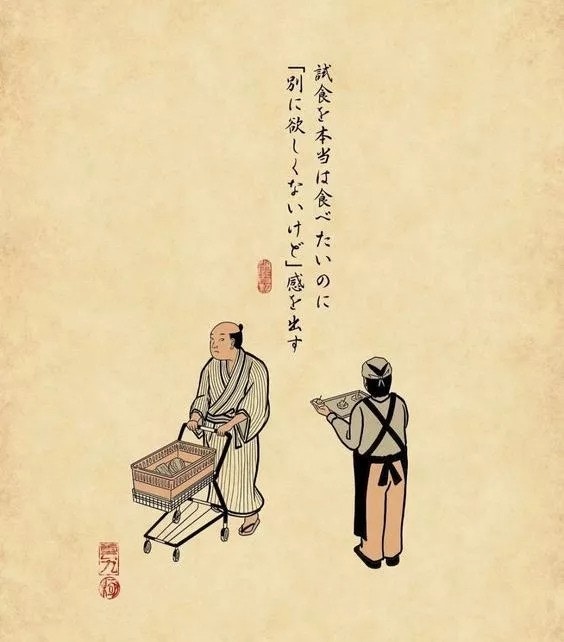 試食を本当は食べたいのに
「別に欲しくないけど」感を出す